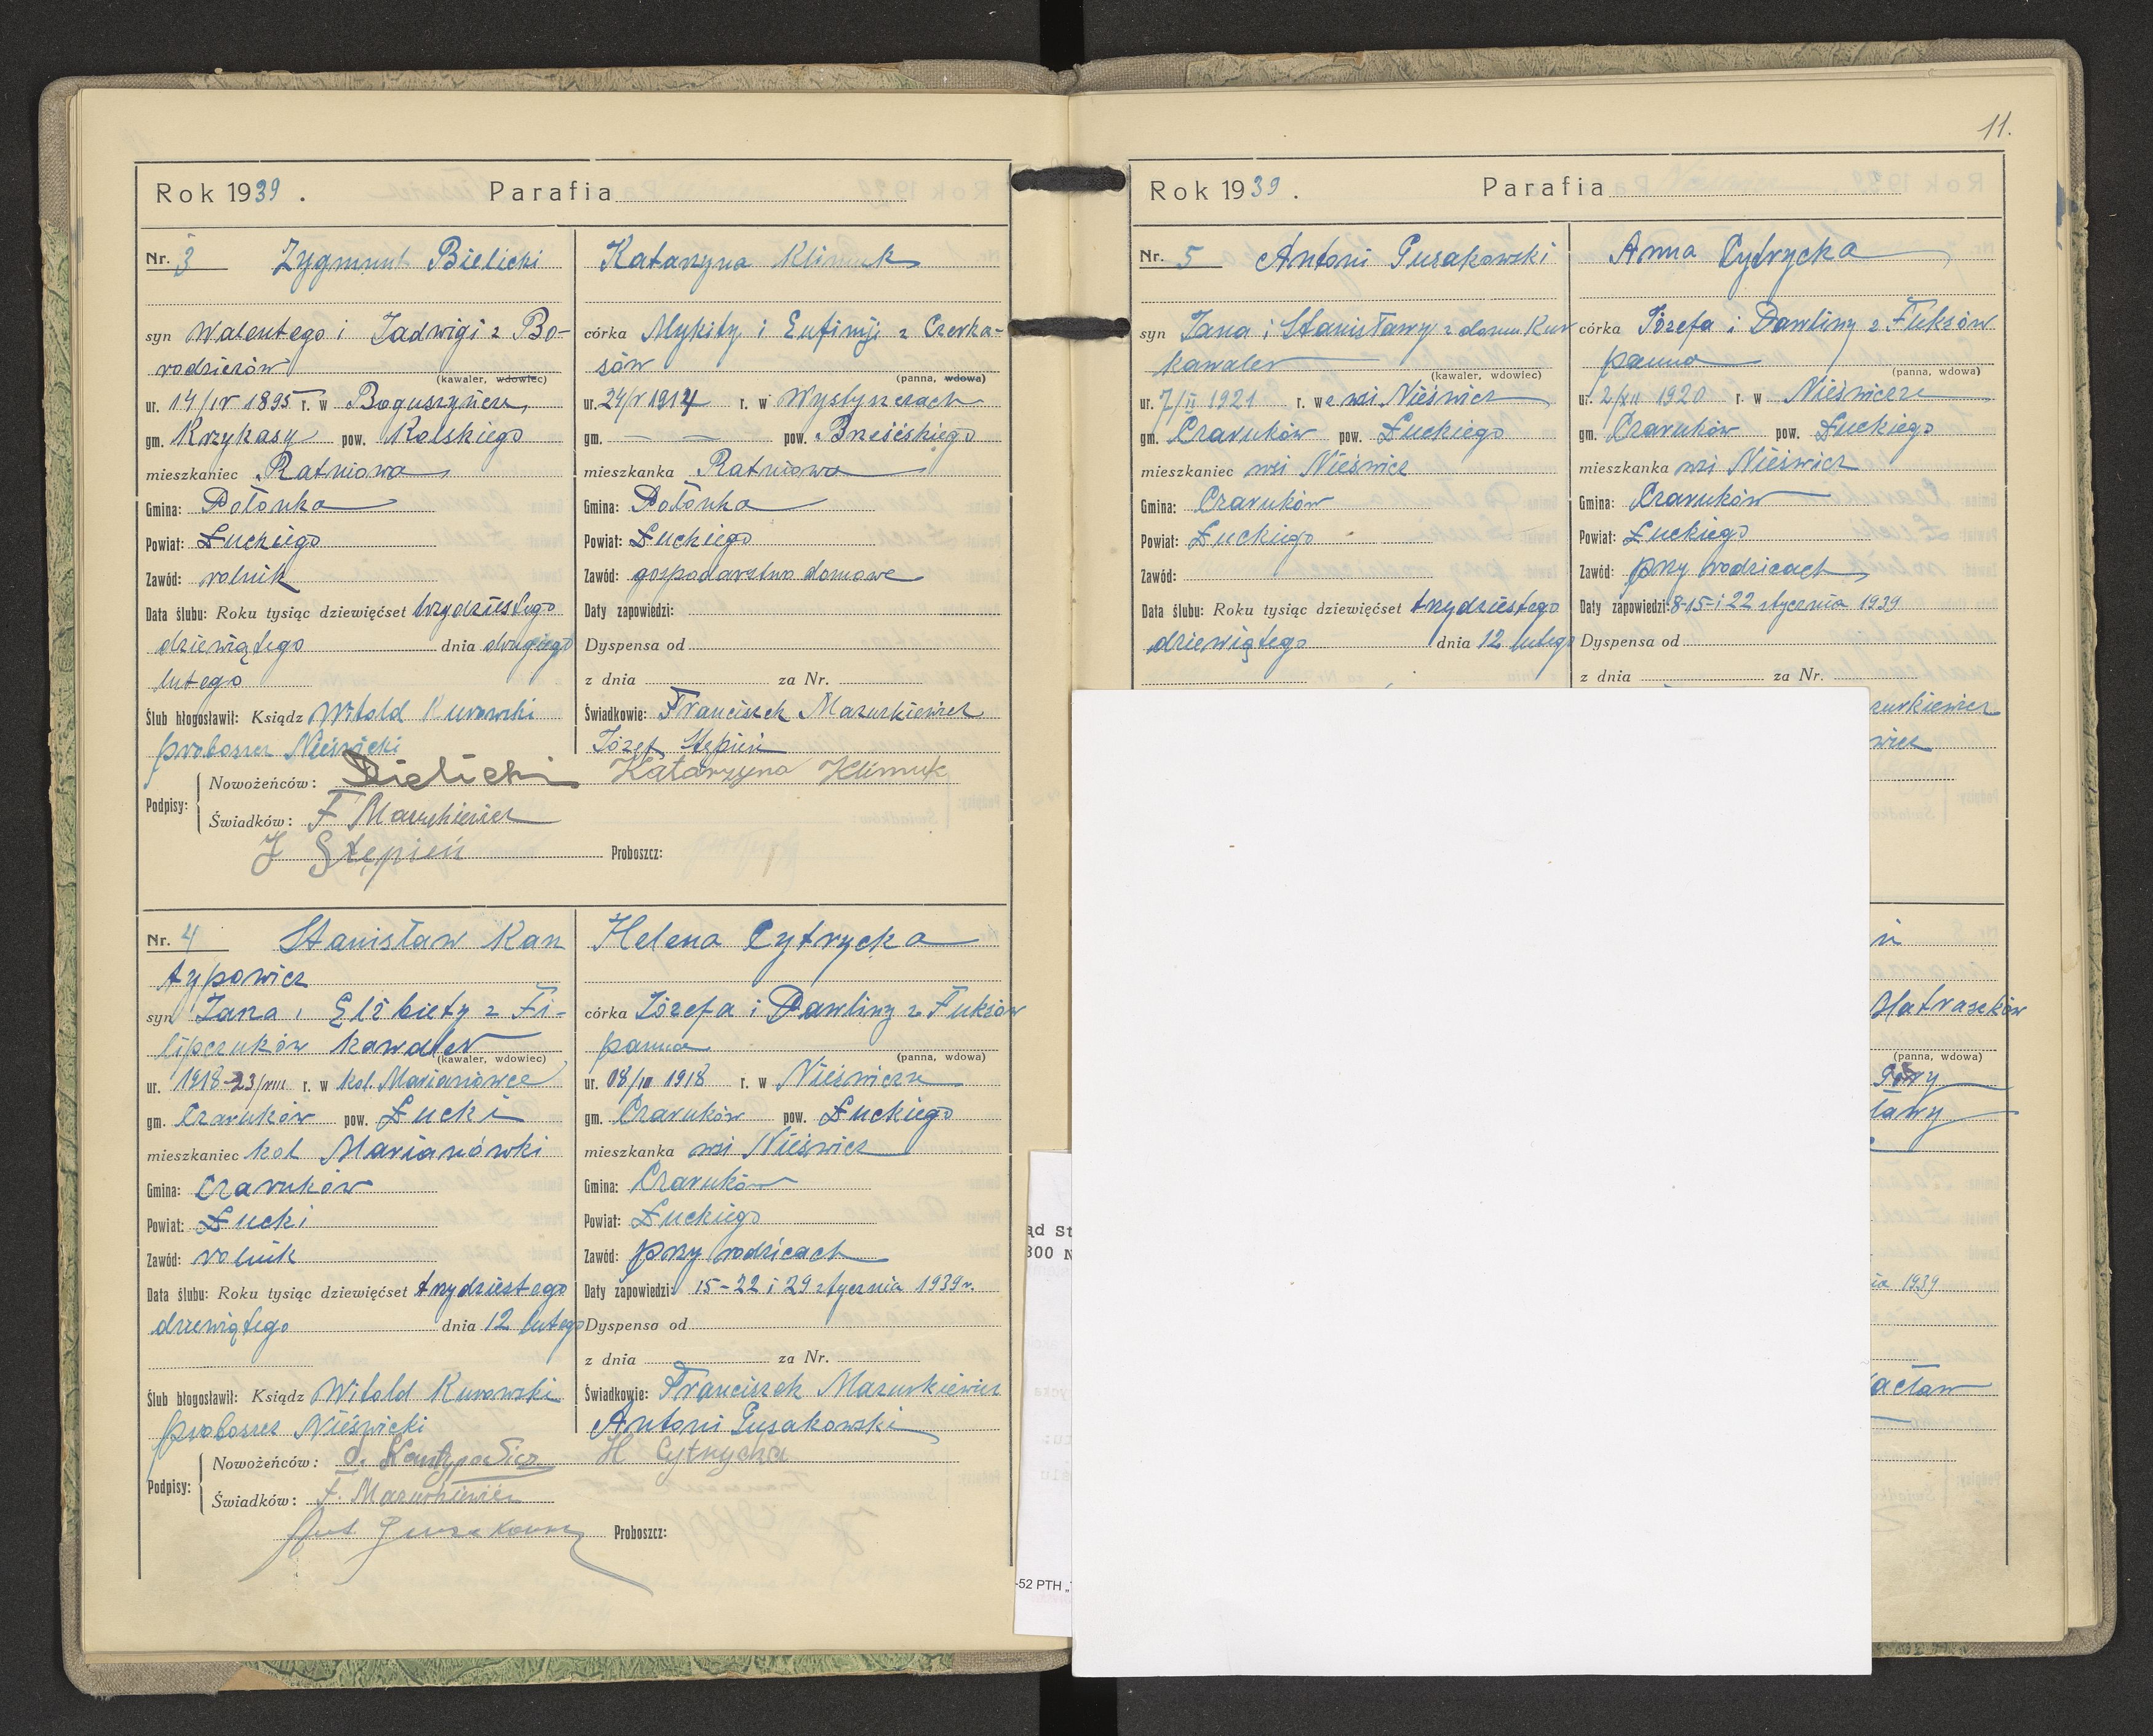 11.
Rok 1939. Parafia
Nr. 3 Zygmunt Bielicki
syn Walentego i Jadwigi z Bo-
rodzieców
(kawaler, wdowiec)
ur. 14/IV 1895 r. w Boguszyńcu
gm. Krzykasy pow. Kolskiego
mieszkaniec Ratniowa
Gmina: Połonka
Powiat: Łuckiego
Zawód: rolnik
Data ślubu: Roku tysiąc dziewięćset trzydziestego
dziewiątego dnia drugiego
lutego
Ślub błogosławił: Ksiądz Witold Kurowski
proboszcz Nieświcki
Katarzyna Klimuk
córka Mykity i Eufimji z Czerka-
sów
(panna, wdowa)
ur. 24/V 1914 r. w Wystyczach
gm. — — pow. Brześskiego
mieszkanka Ratniowa
Gmina: Połonka
Powiat: Łuckiego
Zawód: gospodarstwo domowe
Daty zapowiedzi:
Dyspensa od
z dnia za Nr.
Świadkowie: Franciszek Mazurkiewicz
Józef Stępień
Podpisy:
Nowożeńców: Bielicki Katarzyna Klimuk
Świadków: F Mazurkiewicz
J Stępień Proboszcz:
Nr. 4 Stanisław Kan
typowicz
syn Jana i Elżbiety z Fi-
lipczuków kawaler
(kawaler, wdowiec)
ur. 1918-23/VIII r. w kol. Marianówce
gm. Czaruków pow. Łucki
mieszkaniec kol Marianówki
Gmina: Czaruków
Powiat: Łucki
Zawód: rolnik
Data ślubu: Roku tysiąc dziewięćset trzydziestego
dziewiątego dnia 12 lutego
Ślub błogosławił: Ksiądz Witold Kurowski
proboszcz Nieświcki
Helena Cytrycka
córka Józefa i Pawliny z Fuksów
panna
(panna, wdowa)
ur. 08/III 1918 r. w Nieświczu
gm. Czaruków pow. Łuckiego
mieszkanka wsi Nieświcz
Gmina: Czaruków
Powiat: Łuckiego
Zawód: przy rodzicach
Daty zapowiedzi: 15-22 i 29 stycznia 1939 r.
Dyspensa od
z dnia za Nr.
Świadkowie: Franciszek Mazurkiewicz
Antoni Gusakowski
Podpisy:
Nowożeńców: S. Kantypowicz H Cytrycka
Świadków: F. Mazurkiewicz
Ant Gusakowski Proboszcz:
Rok 1939. Parafia
Nr. 5 Antoni Gusakowski
syn Jana i Stanisławy z domu Kur
kawaler
(kawaler, wdowiec)
ur. 7/II 1921 r. we wsi Nieświcz
gm. Czaruków pow. Łuckiego
mieszkaniec wsi Nieświcz
Gmina: Czaruków
Powiat: Łuckiego
Zawód:
Data ślubu: Roku tysiąc dziewięćset trzydziestego
dziewiątego dnia 12 lutego
Anna Cytrycka
córka Józefa i Pawliny z Fuksów
panna
(panna, wdowa)
ur. 2/XII 1920 r. w Nieświcze
gm. Czaruków pow. Łuckiego
mieszkanka wsi Nieświcz
Gmina: Czaruków
Powiat: Łuckiego
Zawód: przy rodzicach
Daty zapowiedzi: 8-15-i 22 stycznia 1939
Dyspensa od
z dnia za Nr.
zurkiewicz
wicz
Matraszków
(panna, wdowa)
ławy
ia 1939
acław
ąd St
300 N
-52 PTH „